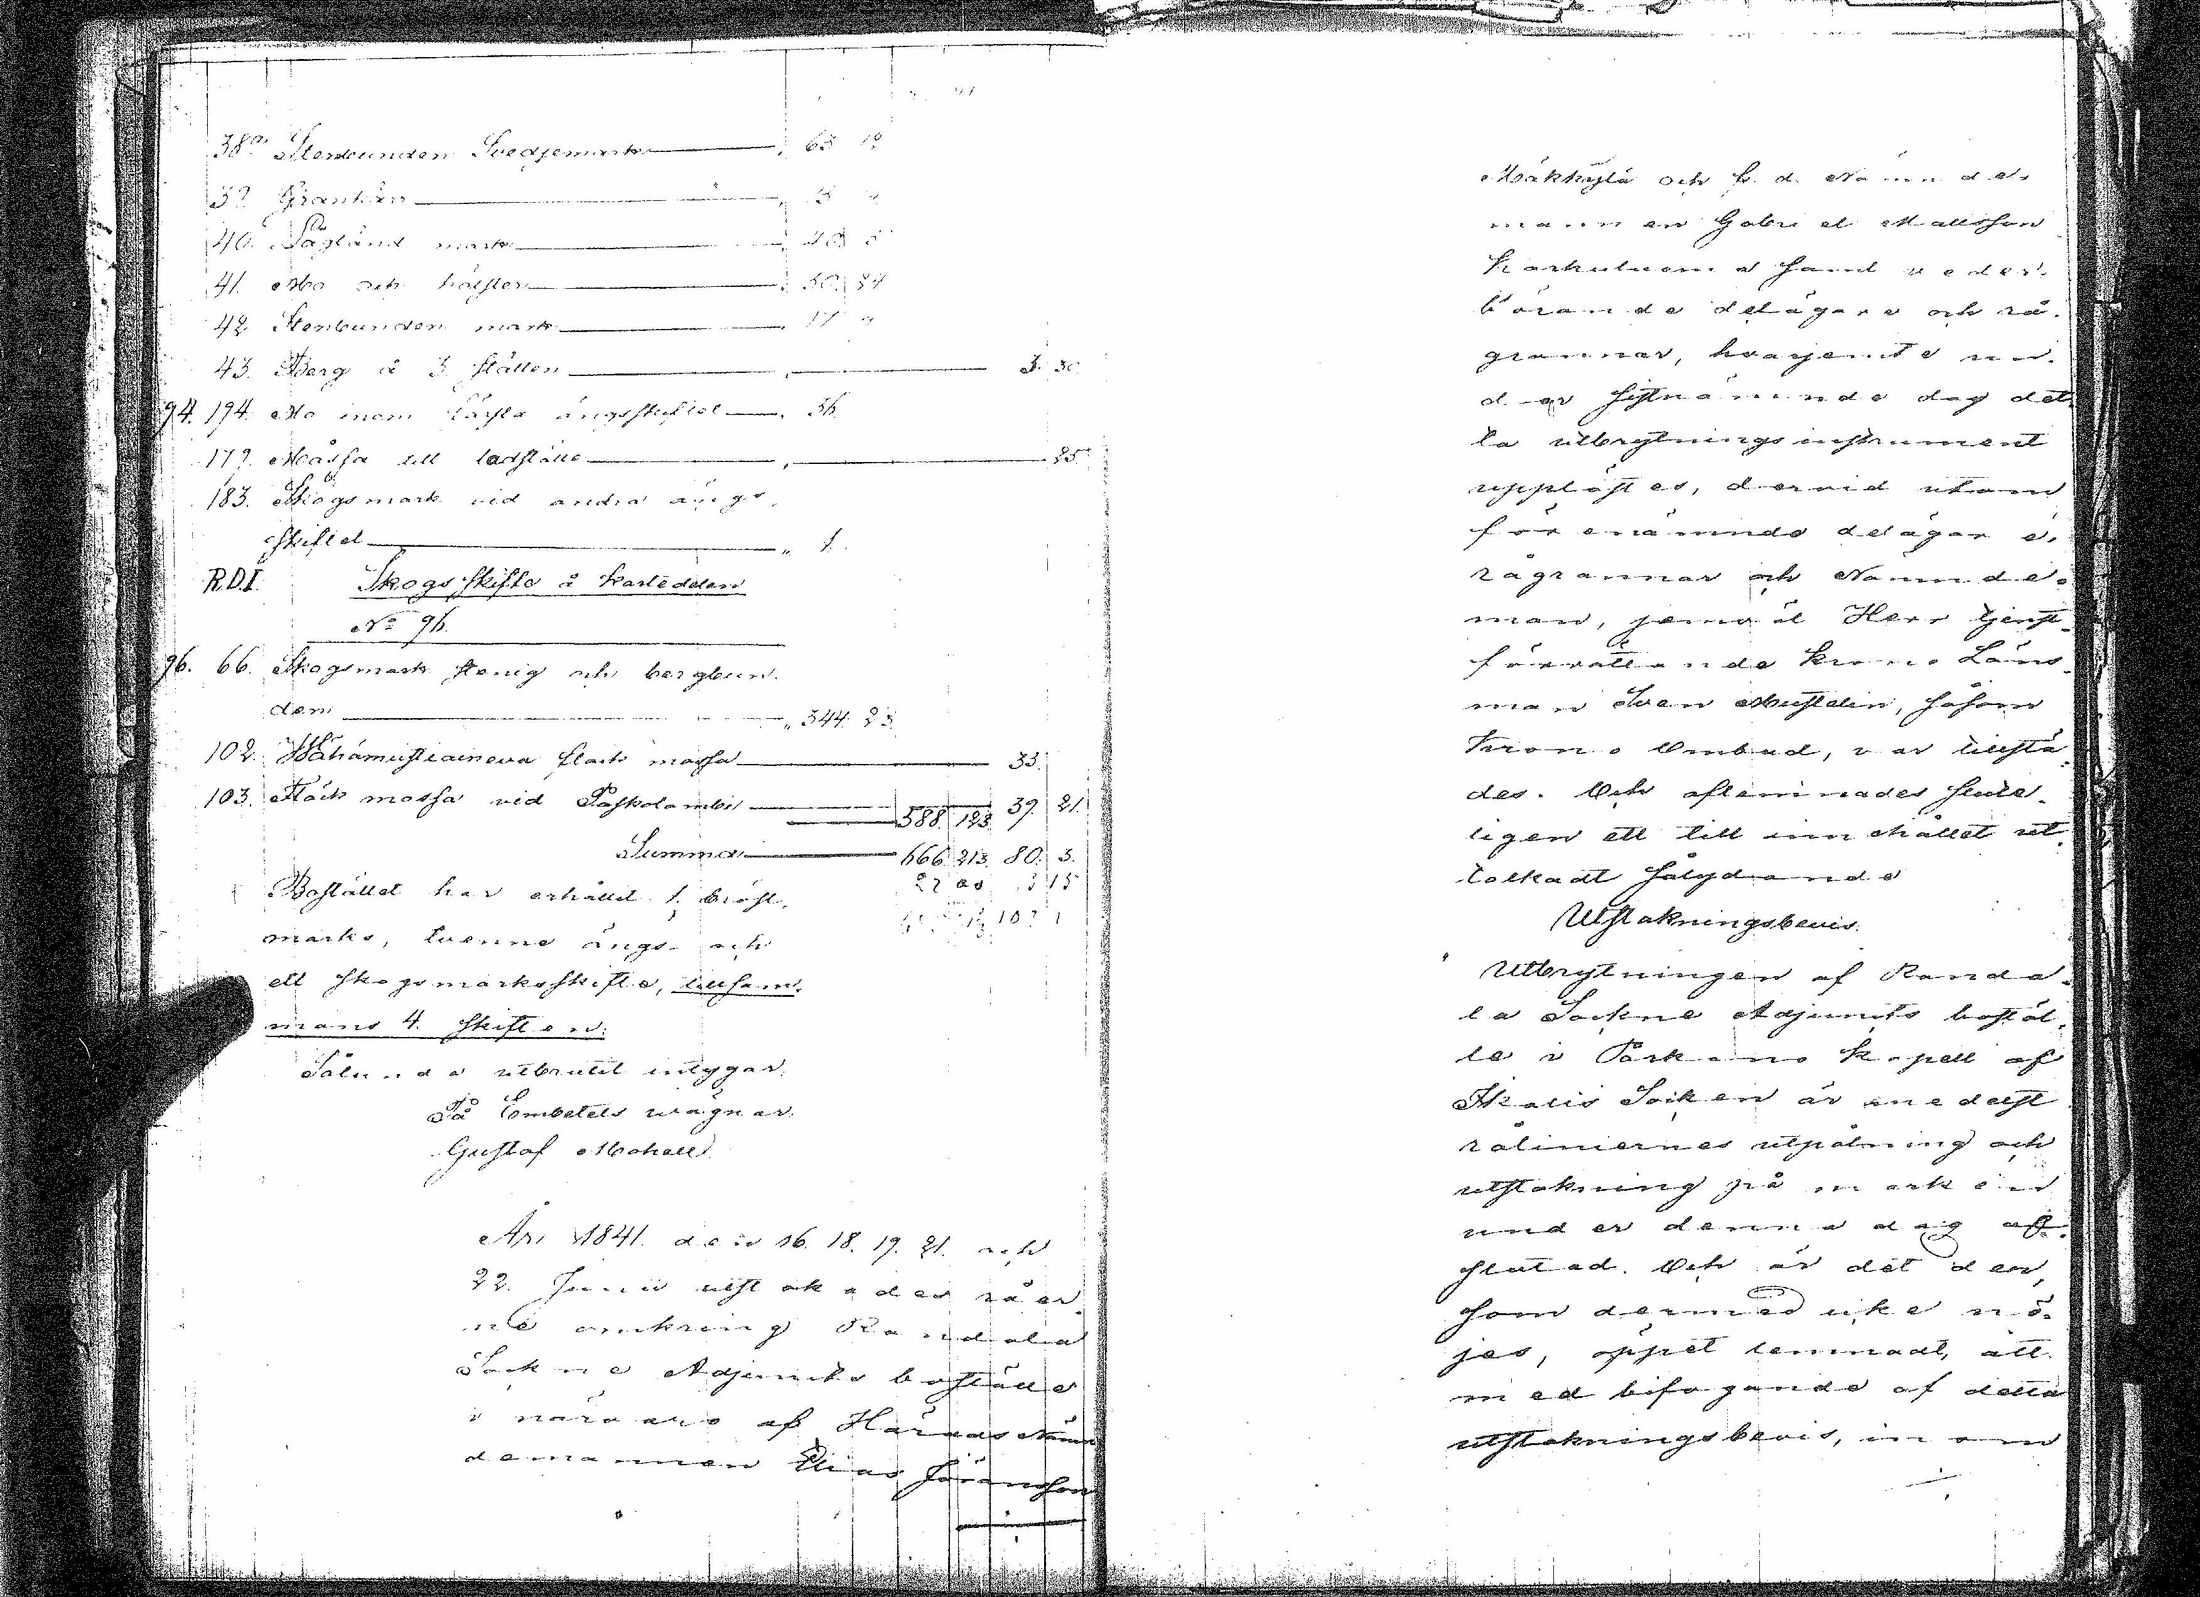 38a Stenbunden Svedjemark " 63
39. Grankärr "
40. Lågländ mark "
41. Mo och "
42. Stenbunden mark " 17
43. Berg å 3 ställen " 3. 30
94. 194. Mo inom ängsskiftet " 36.
179. Måssa till ladställe " 25
183. Skogsmark vid andra ängs
skiftet " 1.
R.D.I. Skogsskifte å kartedelen
No 96.
96. 66. Skogsmark stenig och bergbun-
den " 344. 23
102. flack mossa 33.
103. Flack mossa vid Paskolambi 39. 21.
588. 123
Summa 666. 213. 80. 3.
Bostället har erhållit 1.
marks, tvenne ängs- och
ett skogsmarksskifte, tillsam-
mans 4. skiften.
Sålunda utbrutit intygar.
På Embetets vägnar.
Gustaf Mohell
År 1841. den 16. 18. 19. 21. och
22. Junii utstakades råer
ne omkring Randala
Sockne Adjunkts boställe
i närvaro af Härads Näm
demannen Elias Göransson
Mäkkylä och f. d. Nämnde-
mannen Gabriel Mattsson
samt veder-
börande delägare och rå-
grannar, hvarjemte un-
der sistnämnde dag det-
ta utbrytningsinstrument
upplästes, dervid utom
förenämnde delägare,
rågrannar och Nämnde-
man, jemväl Herr tjenst-
förrättande krono Läns-
man Sven såsom
krono Ombud, var tillstä-
des. Och aflemnades slute-
ligen ett till innehållet ut-
tolkadt sålydande
Utstakningsbevis.
Utbrytningen af Randa-
la Sockne Adjunkts bostäl-
le i Parkano Kapell af
Ikalis Socken är medelst
råliniernes utpålning och
utstakning på marken
under denna dag af-
slutad. Och är det den,
som dermed icke nö-
jes, öppet lemnadt, att
med bifogande af detta
utstakningsbevis, inom